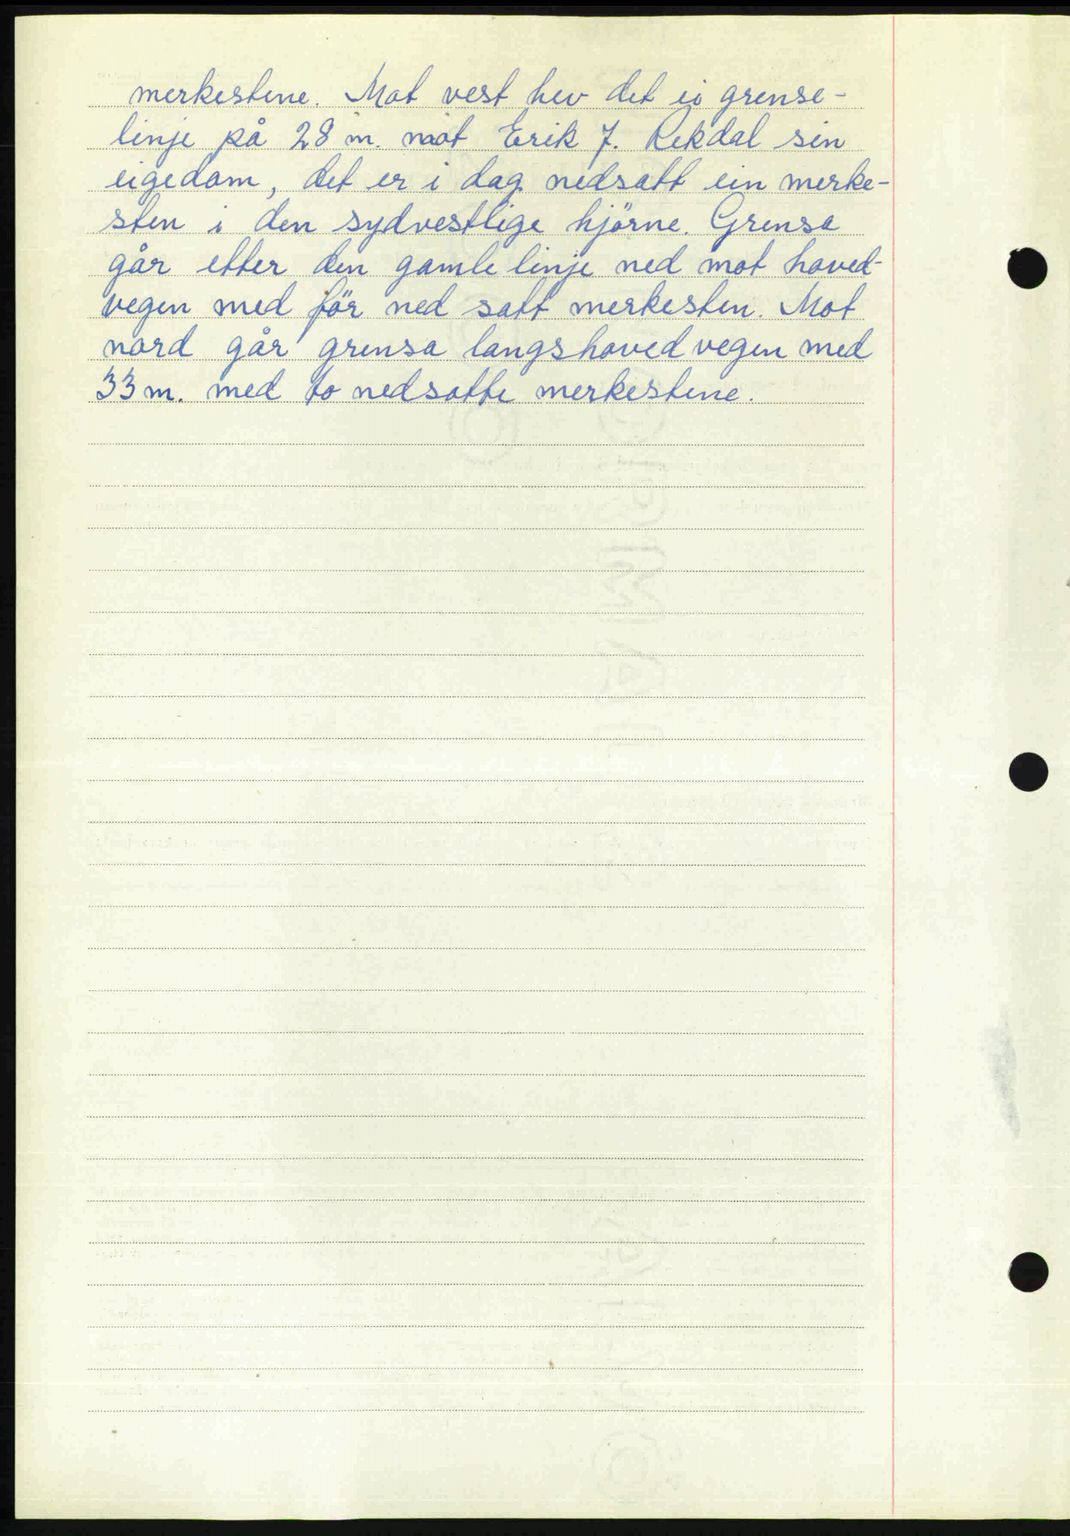 merkestene. Mot vest hev det ei grense-
linje på 28 m. mot Erik J. Rekdal sin
eigedom, det er i dag nedsatt ein merke-
sten i den sydvestlige hjörne. Grensa
går etter den gamle linje ned mot hoved-
vegen med før ned satt merkesten. Mot
nord går grensa langs hovedvegen med
33 m. med to nedsatte merkestene.